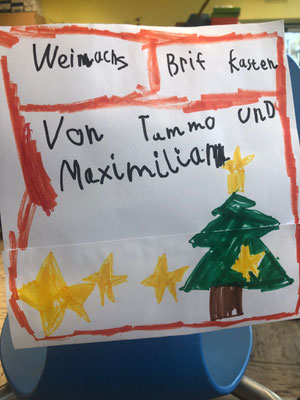 Weimachs Brif kasten
Von Tammo und
Maximilian